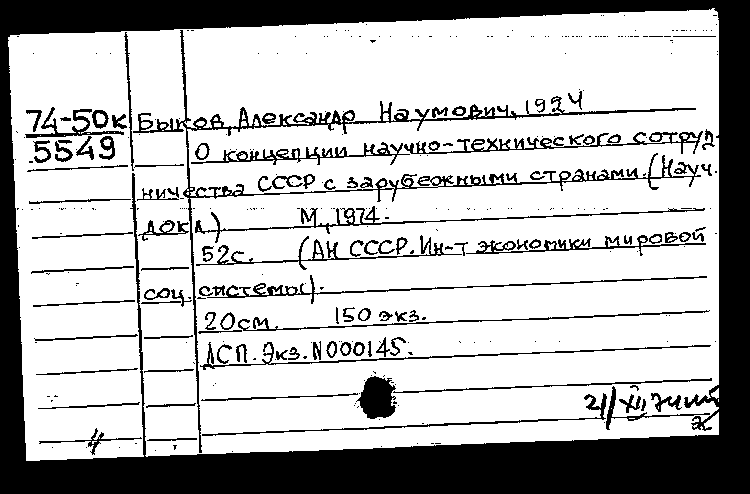 74-50к Быков, Александр Наумович, 1924
5549 О концепции научно-технического сотруд-
ничества СССР с зарубежными странами. (Науч.
докл.) М., 1974.
52с. (АН СССР. Ин-т экономики мировой
соц. системы).
20см. 150 экз.
ДСП. Экз. N000145.
21/XII 74
4